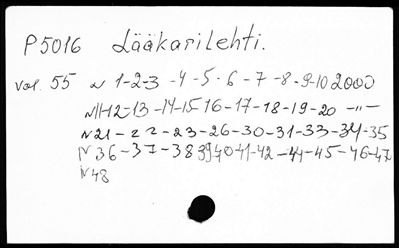 P5016 Lääkarilehti.
vol. 55 N 1-2-3 -4-5-6-7-8-9-10 2000
N11-12-13-14-15 16-17-18-19-20 -"-
N21-22-23-26-30-31-33-34-35
N36-37-38 39 40 41-42-44-45-46-47
N48